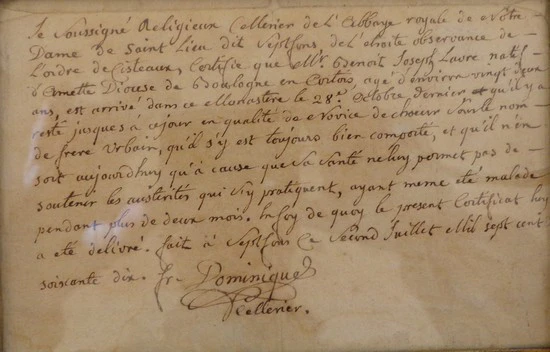 Je Soussigné Religieux Cellerier de L'Abbaye royale de Notre
Dame de Saint Lieu dit Septfons, de L'etroite observance de
L'ordre de Cisteaux, Certifie que Mr. Benoit Joseph Lavre natif
d'Amette Diocese de Boulogne en Cartois, agé d'environ vingt deux
ans, est arrivé dans ce Monastere le 28e. Octobre dernier et qu'il y a
resté jusques à ce jour en qualité de Novice de choeur Sous le nom
de frere Urbain, qu'il s'y est toujours bien comporté, et qu'il n'en
sort aujourdhuy qu'à cause que Sa Santé ne luy permet pas de
soutenir les austerités qui s'y pratiquent, ayant meme eté malade
pendant plus de deux mois. En foy de quoy le present Certificat luy
a eté delivré. fait à Septfons Ce Second Juillet Mil sept cent
soixante dix. fr. Dominique
Cellerier.